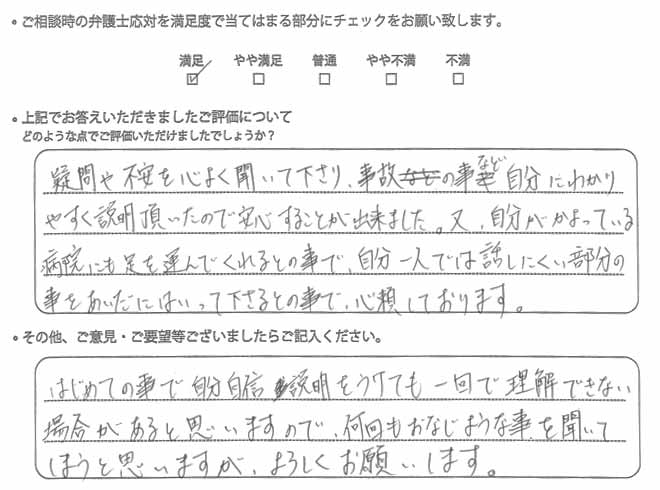 • ご相談時の弁護士応対を満足度で当てはまる部分にチェックをお願い致します。
満足 やや満足 普通 やや不満 不満
☑ ☐ ☐ ☐ ☐
• 上記でお答えいただきましたご評価について
どのような点でご評価いただけましたでしょうか？
疑問や不安を心よく聞いて下さり、事故の事など自分にわかり
やすく説明頂いたので安心することが出来ました。又、自分がかよっている
病院にも足を運んでくれるとの事で、自分一人では話しにくい部分の
事をあいだにはいって下さるとの事で、心頼しております。
• その他、ご意見・ご要望等ございましたらご記入ください。
はじめての事で自分自信 説明をうけても一回で理解できない
場合があると思いますので、何回もおなじような事を聞いて
しまうと思いますが、よろしくお願いします。